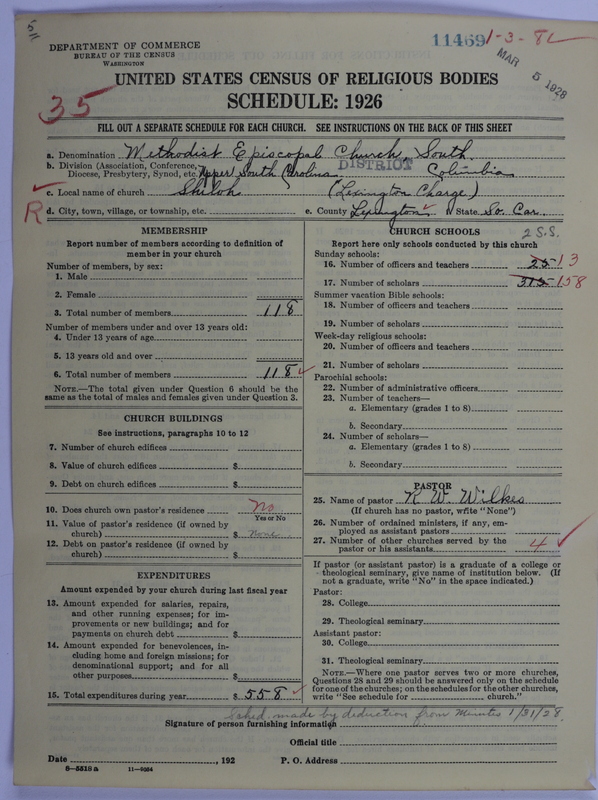 11469
1-3-82
MAR 5 1928
DEPARTMENT OF COMMERCE
BUREAU OF THE CENSUS
WASHINGTON
UNITED STATES CENSUS OF RELIGIOUS BODIES
SCHEDULE: 1926
35
FILL OUT A SEPARATE SCHEDULE FOR EACH CHURCH. SEE INSTRUCTIONS ON THE BACK OF THIS SHEET
a. Denomination Methodist Episcopal Church, South.
b. Division (Association, Conference, DISTRICT
Diocese, Presbytery, Synod, etc. Upper South Carolina Columbia
c. Local name of church Shiloh (Lexington Charge)
R d. City, town, village, or township, etc. e. County Lexington State So. Car.
MEMBERSHIP
Report number of members according to definition of
member in your church
Number of members, by sex:
1. Male
2. Female
3. Total number of members 118
Number of members under and over 13 years old:
4. Under 13 years of age
5. 13 years old and over
6. Total number of members 118
NOTE.—The total given under Question 6 should be the
same as the total of males and females given under Question 3.
CHURCH BUILDINGS
See instructions, paragraphs 10 to 12
7. Number of church edifices
8. Value of church edifices $
9. Debt on church edifices $
10. Does church own pastor's residence No
Yes or No
11. Value of pastor's residence (if owned by
church) $ None
12. Debt on pastor's residence (if owned by
church) $
EXPENDITURES
Amount expended by your church during last fiscal year
13. Amount expended for salaries, repairs,
and other running expenses; for im-
provements or new buildings; and for
payments on church debt $
14. Amount expended for benevolences, in-
cluding home and foreign missions; for
denominational support; and for all
other purposes $
15. Total expenditures during year $ 558
CHURCH SCHOOLS 2 S.S.
Report here only schools conducted by this church
Sunday schools:
16. Number of officers and teachers 25 13
17. Number of scholars 315 158
Summer vacation Bible schools:
18. Number of officers and teachers
19. Number of scholars
Week-day religious schools:
20. Number of officers and teachers
21. Number of scholars
Parochial schools:
22. Number of administrative officers
23. Number of teachers—
a. Elementary (grades 1 to 8)
b. Secondary
24. Number of scholars—
a. Elementary (grades 1 to 8)
b. Secondary
PASTOR
25. Name of pastor K W. Wilkes
(If church has no pastor, write "None")
26. Number of ordained ministers, if any, em-
ployed as assistant pastors
27. Number of other churches served by the
pastor or his assistants 4
If pastor (or assistant pastor) is a graduate of a college or
theological seminary, give name of institution below. (If
not a graduate, write "No" in the space indicated.)
Pastor:
28. College
29. Theological seminary
Assistant pastor:
30. College
31. Theological seminary
NOTE.—Where one pastor serves two or more churches,
Questions 28 and 29 should be answered only on the schedule
for one of the churches; on the schedules for the other churches,
write "See schedule for church."
Sched. made by deduction from Minutes 1/31/28.
Signature of person furnishing information
Official title
Date , 192 P. O. Address
8-5518 a 11-9034